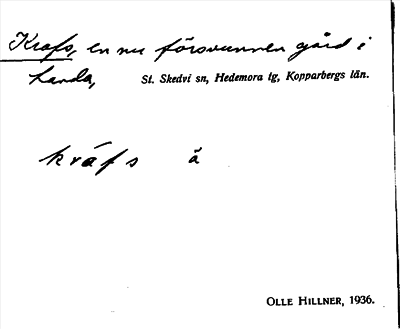 Krafs, en nu försvunnen gård i
Landa, St. Skedvi sn, Hedemora tg, Kopparbergs län.
kráfs ä
OLLE HILLNER, 1936.